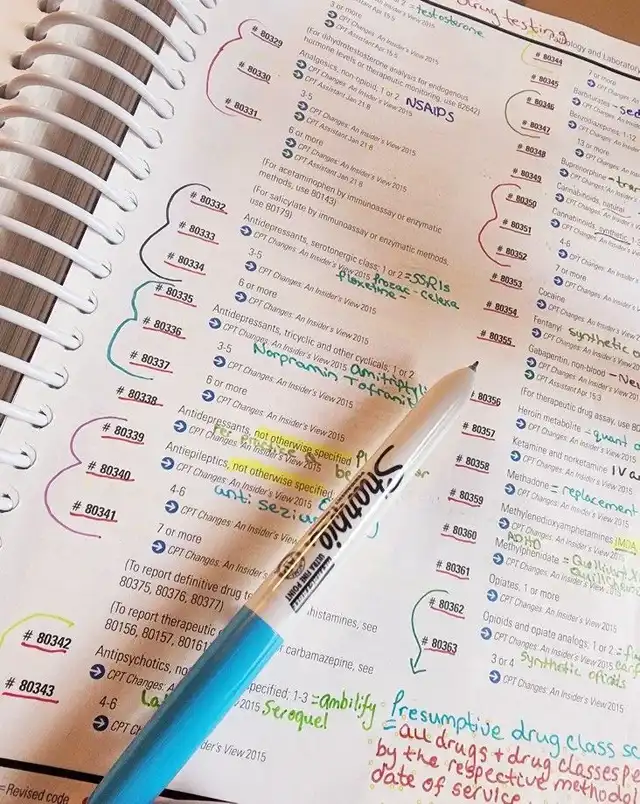 = testosterone
3 or more
CPT Changes: An Insider's View 2015
CPT Assistant Apr 15:5
(For dihydrotestosterone analysis for endogenous
hormone levels or therapeutic monitoring, use 82642)
# 80329 Analgesics, non-opioid; 1 or 2 NSAIDS
CPT Changes: An Insider's View 2015
CPT Assistant Jan 21:8
# 80330 3-5
CPT Changes: An Insider's View 2015
CPT Assistant Jan 21:8
# 80331 6 or more
CPT Changes: An Insider's View 2015
CPT Assistant Jan 21:8
(For acetaminophen by immunoassay or enzymatic
methods, use 80143)
(For salicylate by immunoassay or enzymatic methods,
use 80179)
# 80332 Antidepressants, serotonergic class; 1 or 2 = SSRIs
CPT Changes: An Insider's View 2015 prozac - celexa
floxetine -
# 80333 3-5
CPT Changes: An Insider's View 2015
# 80334 6 or more
CPT Changes: An Insider's View 2015
# 80335 Antidepressants, tricyclic and other cyclicals; 1 or 2
CPT Changes: An Insider's View 2015
Norpramin Tofranil
# 80336 3-5
CPT Changes: An Insider's View 2015
# 80337 6 or more
CPT Changes: An Insider's View 2015
# 80338 Antidepressants, not otherwise specified
CPT Changes: An Insider's View 2015
# 80339 Antiepileptics, not otherwise specified;
CPT Changes: An Insider's View 2015
anti
# 80340 4-6
CPT Changes: An Insider's View 2015
# 80341 7 or more
CPT Changes: An Insider's View 2015
(To report definitive drug
80375, 80376, 80377)
(To report therapeutic
80156, 80157, 80161
histamines, see
r carbamazepine, see
# 80342 Antipsychotics, no
specified; 1-3 = ambilify
2015 Seroquel
# 80343 4-6
CPT
der's View 2015
= Revised code
Sharpie
ULTRA FINE POINT
drug testing
Pathology and Laboratory
# 80344 7 or more
CPT Changes: An Insider's
# 80345 Barbiturates
CPT Changes: An
# 80346 Benzodiazepines; 1-12
CPT Changes: An
# 80347 13 or more
CPT Changes: An
# 80348 Buprenorphine
CPT Changes: An
# 80349 Cannabinoids, natural
CPT Changes: An
# 80350 Cannabinoids, synthetic
CPT Changes: An
# 80351 4-6
CPT Changes: An
# 80352 7 or more
CPT Changes: An
# 80353 Cocaine
CPT Changes: An Insider's
# 80354 Fentanyl synthetic
CPT Changes: An Insider's
# 80355 Gabapentin, non-blood
CPT Changes: An Insider's
CPT Assistant Apr 15:3
(For therapeutic drug assay, use 80
# 80356 Heroin metabolite = quant
CPT Changes: An Insider's View
# 80357 Ketamine and norketamine IV
CPT Changes: An Insider's View
# 80358 Methadone = replacement
CPT Changes: An Insider's View
# 80359 Methylenedioxyamphetamines (MDA
CPT Changes: An Insider's View
ADHD
# 80360 Methylphenidate =
CPT Changes: An Insider's View
# 80361 Opiates, 1 or more
CPT Changes: An Insider's View
# 80362 Opioids and opiate analogs; 1 or 2 =
CPT Changes: An Insider's View
# 80363 3 or 4 synthetic opiats
CPT Changes: An Insider's View 2015
Presumptive drug class
= all drugs + drug classes
by the respective
date of service